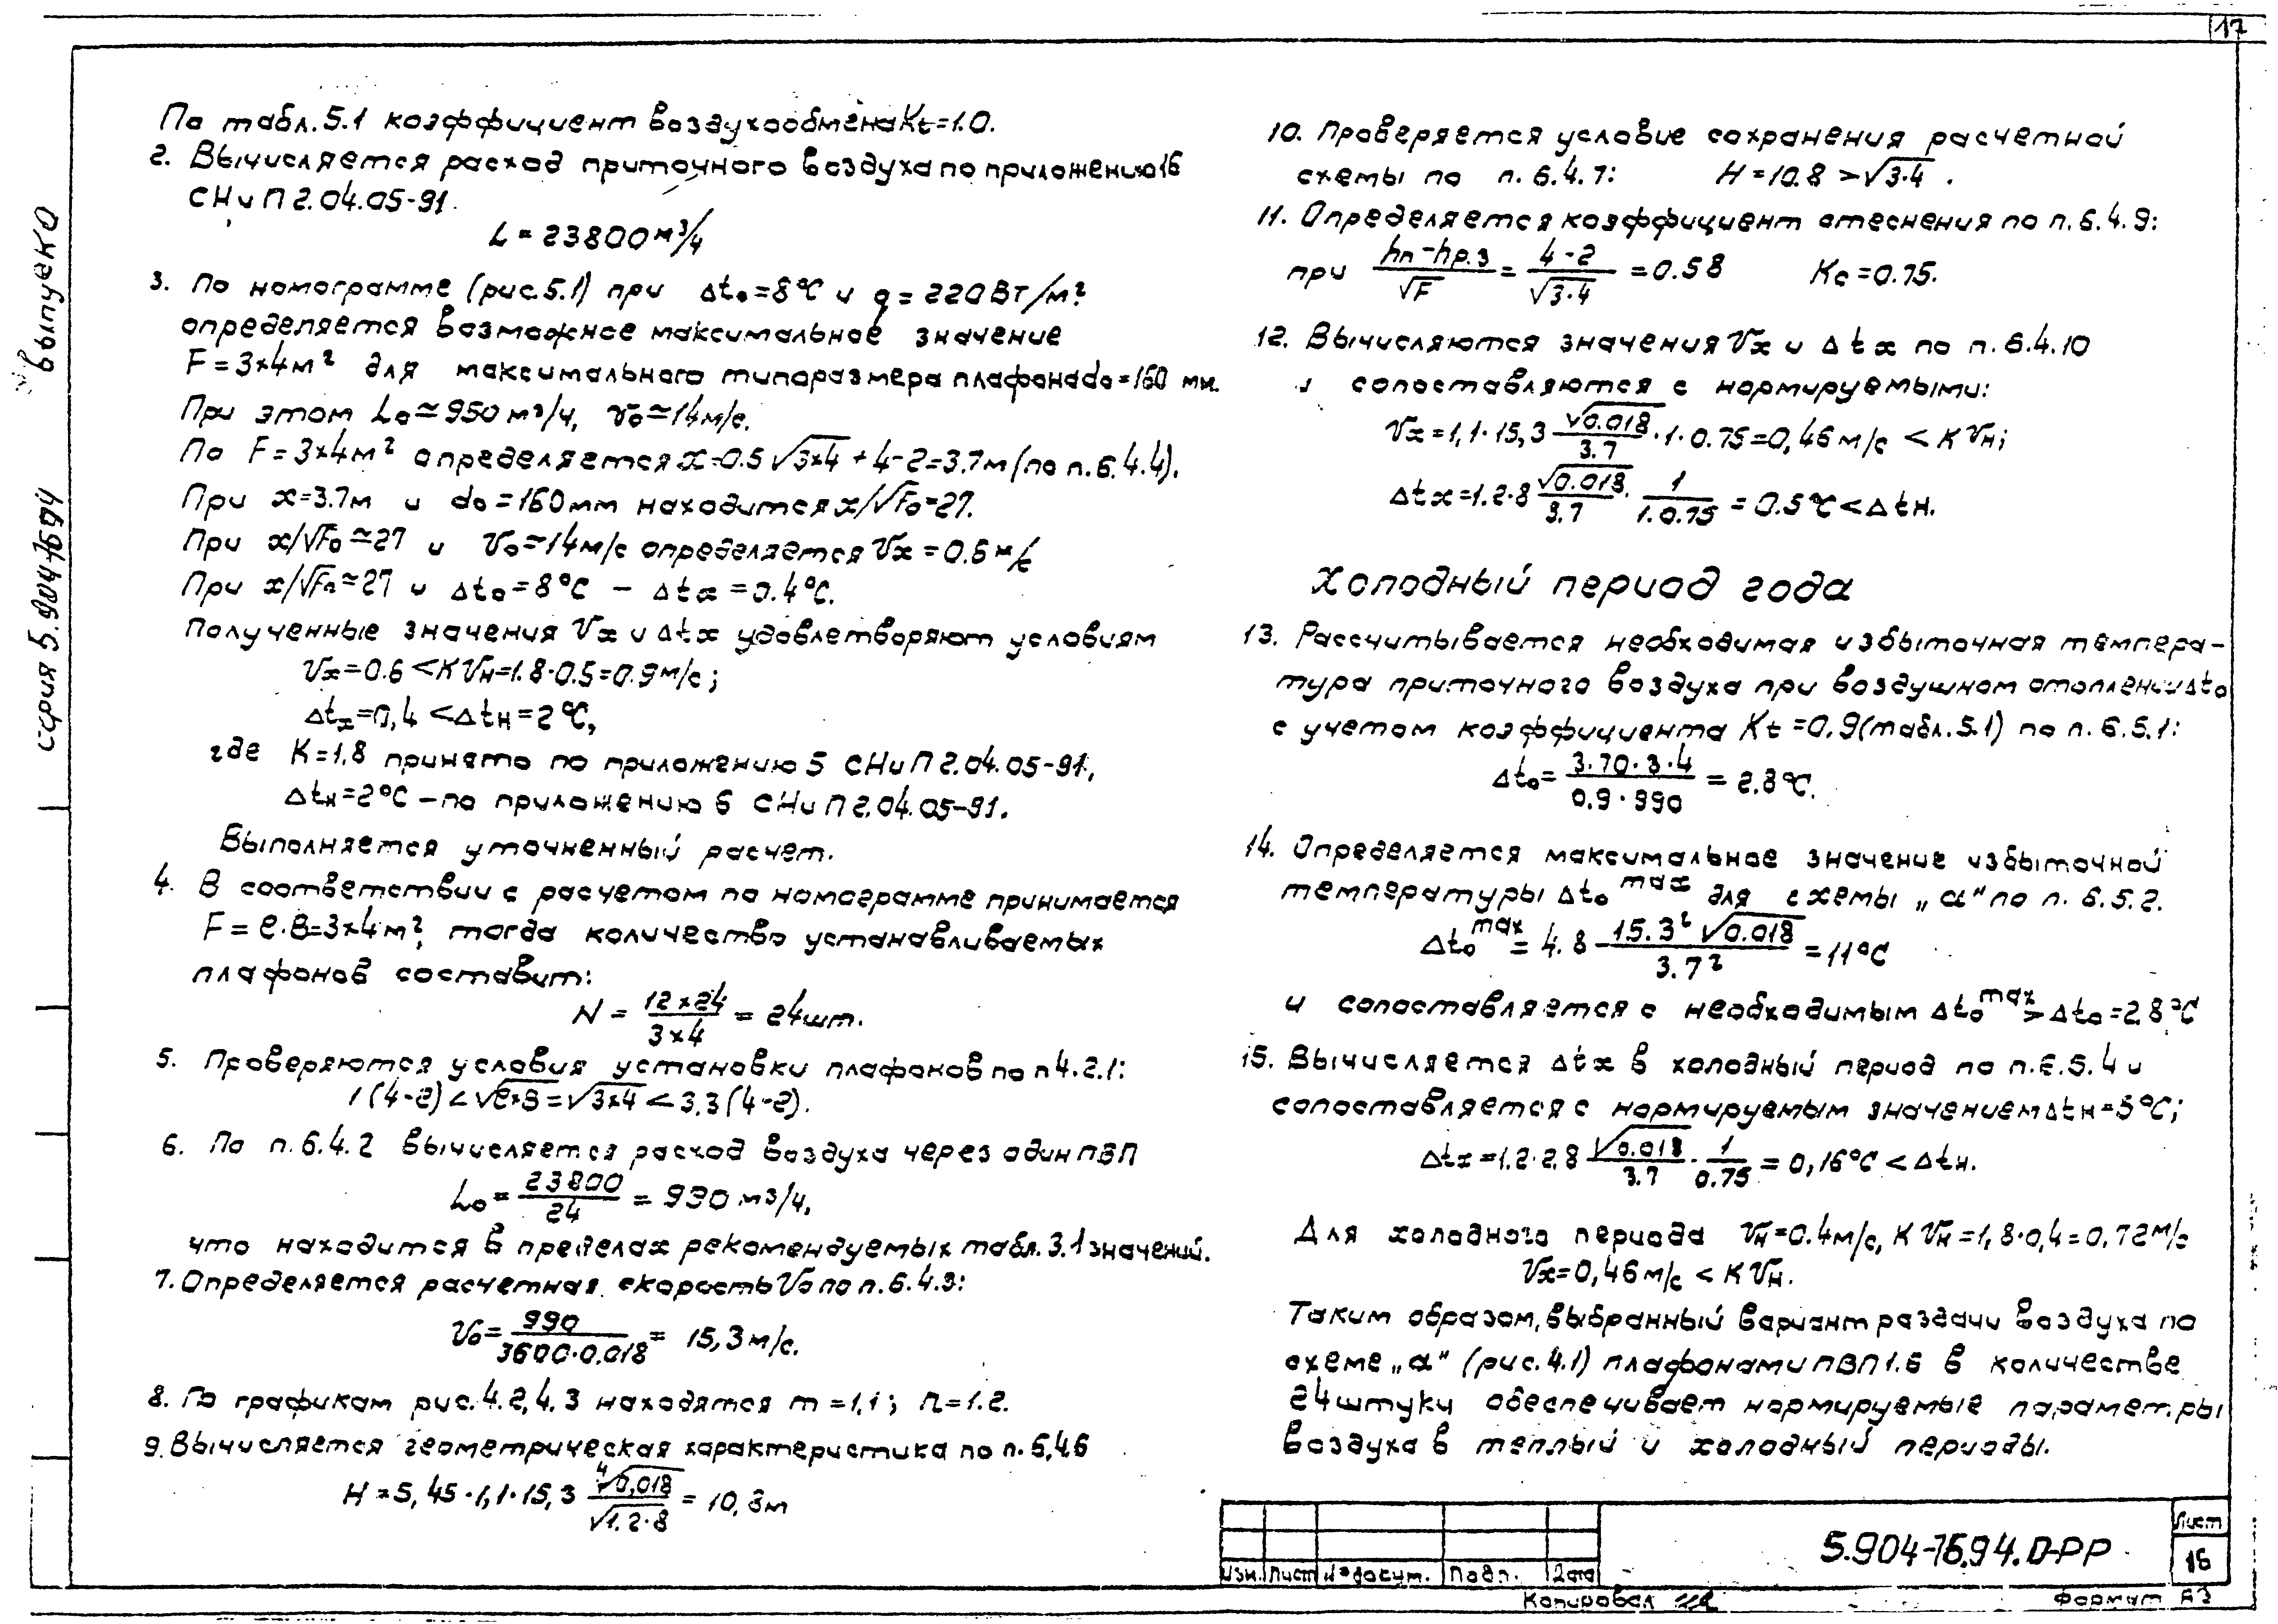 17
По табл. 5.1 коэффициент воздухообмена Kt=1.0.
2. Вычисляется расход приточного воздуха по приложению 16
СНиП 2.04.05-91.
L = 23800 м³/ч
3. По номограмме (рис. 5.1) при Δt₀=8°C и q = 220 Вт/м²
определяется возможное максимальное значение
F=3×4м² для максимального типоразмера плафона d₀=160 мм.
При этом L₀≃950 м³/ч, v₀≃14м/с.
По F=3×4м² определяется x=0.5√3×4 + 4-2=3.7м (по п. 6.4.4).
При x=3.7м и d₀=160мм находится x/√F₀=27.
При x/√F₀≃27 и v₀≃14м/с определяется Vx = 0.6 м/с
При x/√F₀≃27 и Δt₀=8°C – Δtx=0.4°C.
Полученные значения Vx и Δtx удовлетворяют условиям
Vx=0.6<KVн=1.8·0.5=0.9м/с;
Δtx=0,4<Δtн=2°C,
где K=1,8 принято по приложению 5 СНиП 2.04.05-91,
Δtн=2°C – по приложению 6 СНиП 2.04.05-91.
Выполняется уточненный расчет.
4. В соответствии с расчетом по номограмме принимается
F=ℓ·B=3×4м², тогда количество устанавливаемых
плафонов составит:
N = 12×24 / 3×4 = 24шт.
5. Проверяются условия установки плафонов по п 4.2.1:
1(4-2)<√ℓ×B=√3×4<3,3(4-2).
6. По п. 6.4.2 вычисляется расход воздуха через один ПВП
L₀= 23800 / 24 = 990 м³/ч,
что находится в пределах рекомендуемых табл. 3.1 значений.
7. Определяется расчетная скорость V₀ по п. 6.4.3:
V₀= 990 / 3600·0.018 = 15,3м/с.
8. По графикам рис. 4.2, 4.3 находятся m=1,1; n=1.2.
9. Вычисляется геометрическая характеристика по п. 6,4.6
H=5,45·1,1·15,3 ⁴√0,018 / √1.2·8 = 10,8м
10. Проверяется условие сохранения расчетной
схемы по п. 6.4.7: H=10.8>√3·4.
11. Определяется коэффициент стеснения по п. 6.4.9:
при hп-hр.з / √F = 4-2 / √3·4 = 0.58 Kс=0.75.
12. Вычисляются значения Vx и Δtx по п. 6.4.10
и сопоставляются с нормируемыми:
Vx=1,1·15,3 √0.018 / 3.7 ·1·0.75=0,46м/с < KVн;
Δtx=1.2·8 √0.018 / 3.7 · 1 / 1.0.75 = 0.5°C<Δtн.
Холодный период года
13. Рассчитывается необходимая избыточная темпера-
тура приточного воздуха при воздушном отоплении Δt₀
с учетом коэффициента Kt=0,9(табл. 5.1) по п. 6.5.1:
Δt₀= 3·70·3·4 / 0.9·990 = 2.8°C.
14. Определяется максимальное значение избыточной
температуры Δt₀ max для схемы „а" по п. 6.5.2.
Δt₀ max = 4.8 15.3² √0.018 / 3.7² = 11°C
и сопоставляется с необходимым Δt₀ max > Δt₀=2.8°C
15. Вычисляется Δtx в холодный период по п. 6.5.4 и
сопоставляется с нормируемым значением Δtн=5°C;
Δtx=1.2·2,8 √0.018 / 3.7 · 1 / 0.75 = 0,16°C<Δtн.
Для холодного периода Vн=0.4м/с, KVн=1,8·0,4=0,72м/с
Vx=0,46м/с < KVн.
Таким образом, выбранный вариант раздачи воздуха по
схеме „а" (рис. 4.1) плафонами ПВП1.6 в количестве
24 штуки обеспечивает нормируемые параметры
воздуха в теплый и холодный периоды.
серия 5.904-76.94 выпуск 0
Изм. Лист № докум. Подп. Дата
5.904-76.94.0-РР
Лист
16
Копировал
Формат А3